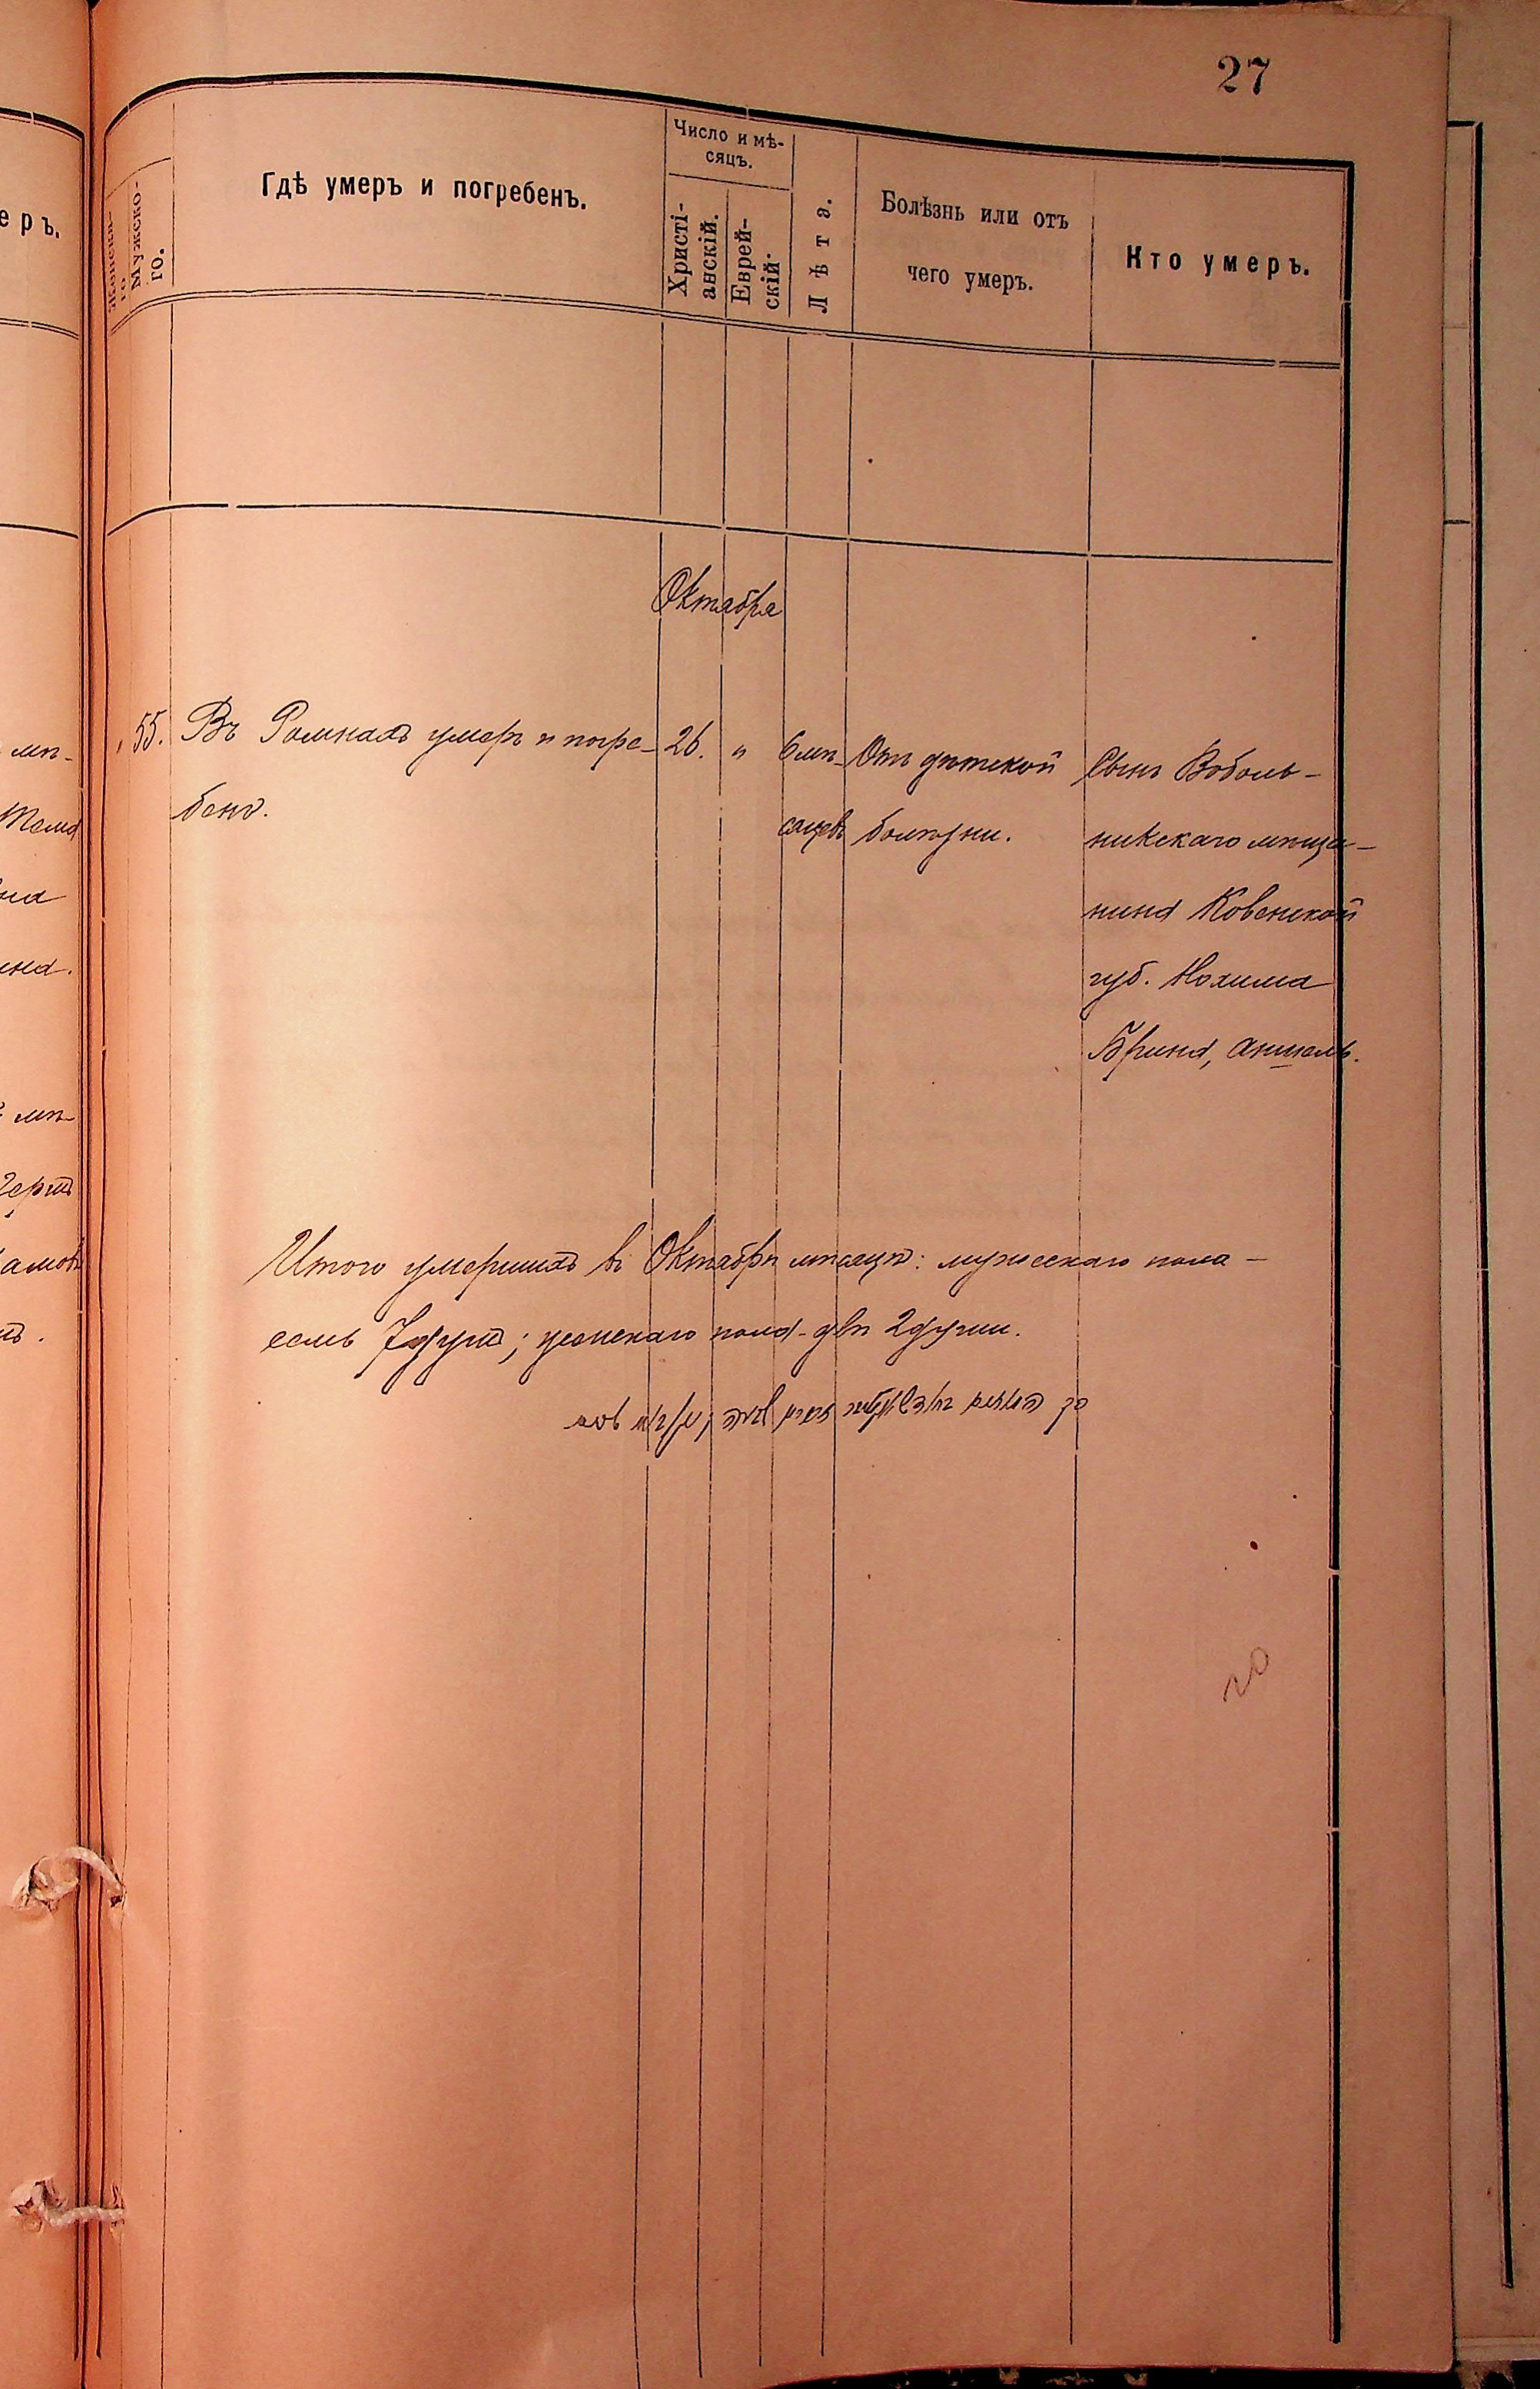 27
еръ.
Женска-
го.
Мужско-
го.
Гдѣ умеръ и погребенъ.
Число и мѣ-
сяцъ.
Христі-
анскій.
Еврей-
скій.
Лѣта.
Болѣзнь или отъ
чего умеръ.
Кто умеръ.
Октября
55. Въ Ромнахъ умеръ и погре-
бенъ.
26. "
6 мѣ-
сяцевъ
Отъ дѣтской
болѣзни.
Сынъ Воболь-
никскаго мѣща-
нина Ковенской
губ. Нохима
Брина, Аншель.
Итого умершихъ въ Октябрѣ мѣсяцѣ: мужескаго пола –
семь 7 душъ; женскаго пола – двѣ 2 души.
20